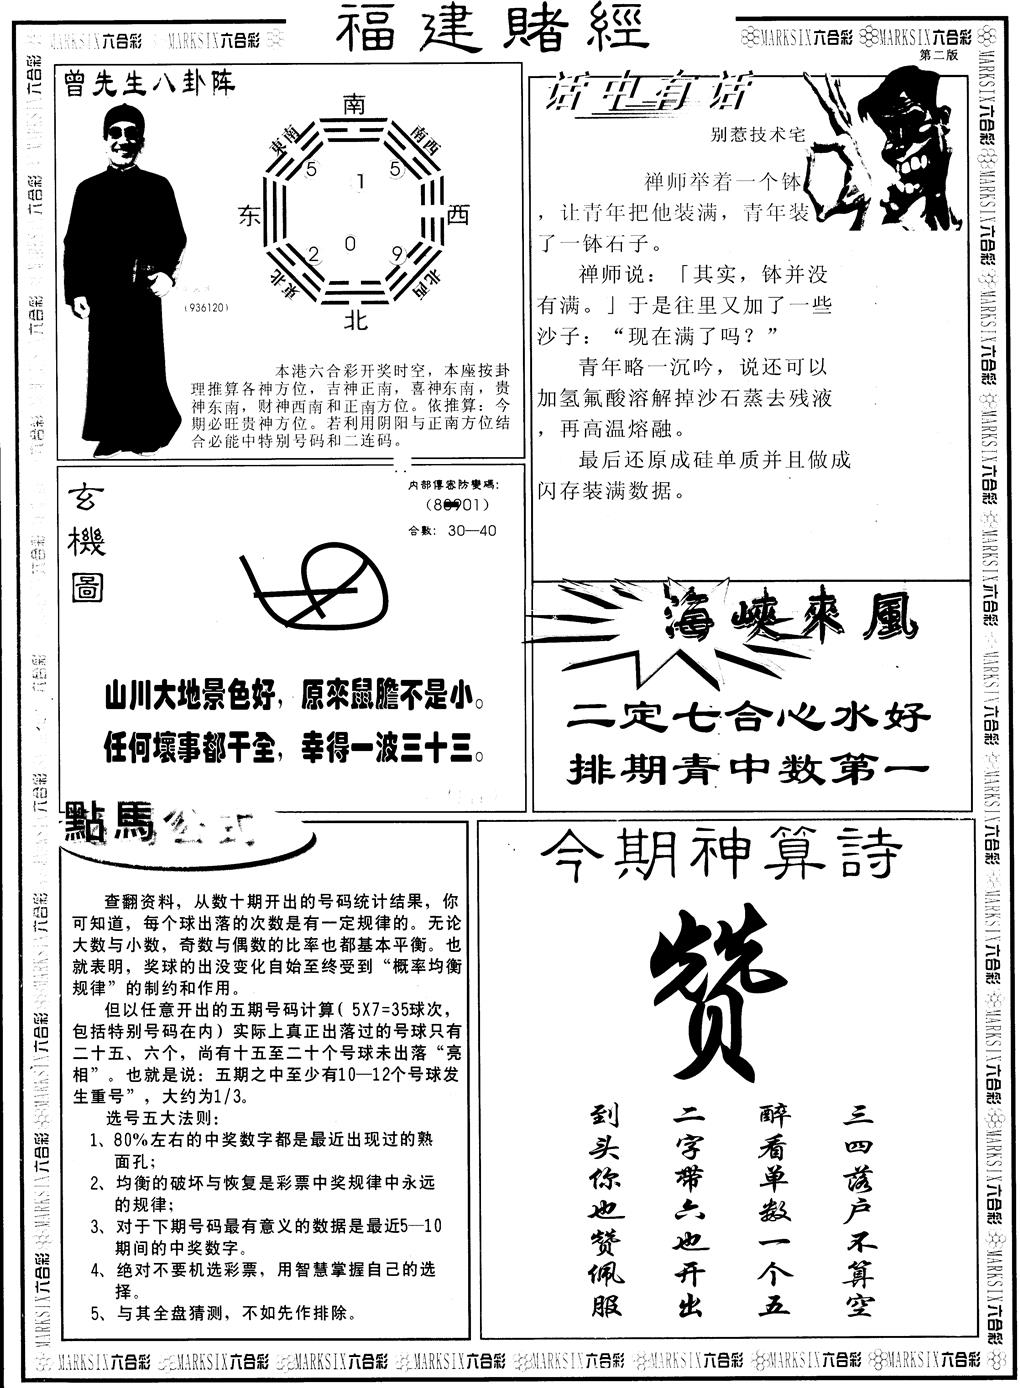 福建賭經
MARKSIX六合彩 MARKSIX六合彩
MARKSIX六合彩 MARKSIX六合彩
第二版
曾先生八卦阵
南
東南 南西
5 1 5
东 西
2 0 9
東北 北西
北
(936120)
本港六合彩开奖时空，本座按卦
理推算各神方位，吉神正南，喜神东南，贵
神东南，财神西南和正南方位。依推算：今
期必旺贵神方位。若利用阴阳与正南方位结
合必能中特别号码和二连码。
话中有话
别惹技术宅
禅师举着一个钵
，让青年把他装满，青年装
了一钵石子。
禅师说：「其实，钵并没
有满。」于是往里又加了一些
沙子：“现在满了吗？”
青年略一沉吟，说还可以
加氢氟酸溶解掉沙石蒸去残液
，再高温熔融。
最后还原成硅单质并且做成
闪存装满数据。
玄機圖
内部傳密防變碼：
合數： 30—40
山川大地景色好，原來鼠膽不是小。
任何壞事都干全，幸得一波三十三。
海峽來風
二定七合心水好
排期青中数第一
點馬公式
查翻资料，从数十期开出的号码统计结果，你
可知道，每个球出落的次数是有一定规律的。无论
大数与小数，奇数与偶数的比率也都基本平衡。也
就表明，奖球的出没变化自始至终受到“概率均衡
规律”的制约和作用。
但以任意开出的五期号码计算( 5X7=35球次，
包括特别号码在内）实际上真正出落过的号球只有
二十五、六个，尚有十五至二十个号球未出落“亮
相”。也就是说：五期之中至少有10—12个号球发
生重号”，大约为1/3。
选号五大法则：
1、80%左右的中奖数字都是最近出现过的熟
面孔；
2、均衡的破坏与恢复是彩票中奖规律中永远
的规律；
3、对于下期号码最有意义的数据是最近5—10
期间的中奖数字。
4、绝对不要机选彩票，用智慧掌握自己的选
择。
5、与其全盘猜测，不如先作排除。
今期神算詩
赞
三四落户不算空
醉看单数一个五
二字带六也开出
到头你也赞佩服
MARKSIX六合彩 MARKSIX六合彩 MARKSIX六合彩 MARKSIX六合彩 MARKSIX六合彩 MARKSIX六合彩 MARKSIX六合彩 MARKSIX六合彩